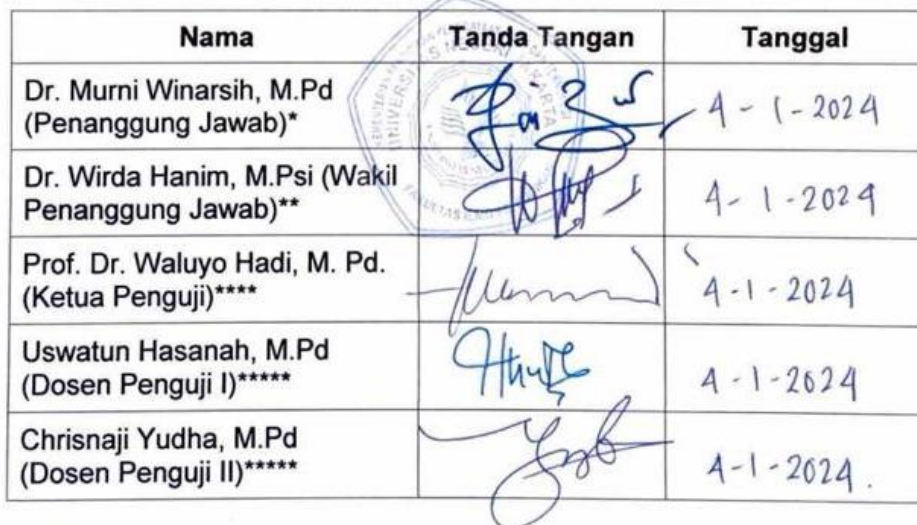 Nama Tanda Tangan Tanggal
Dr. Murni Winarsih, M.Pd
(Penanggung Jawab)* 4 - 1 - 2024
Dr. Wirda Hanim, M.Psi (Wakil
Penanggung Jawab)** 4 - 1 - 2024
Prof. Dr. Waluyo Hadi, M. Pd.
(Ketua Penguji)**** 4 - 1 - 2024
Uswatun Hasanah, M.Pd
(Dosen Penguji I)***** 4 - 1 - 2024
Chrisnaji Yudha, M.Pd
(Dosen Penguji II)***** 4 - 1 - 2024.
UNIVERSITAS NEGERI JAKARTA